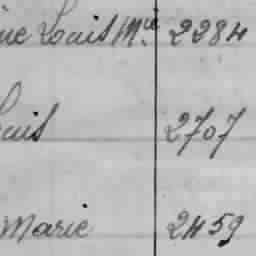 ine Louis Mie 2284
Louis 2707
Marie 2459